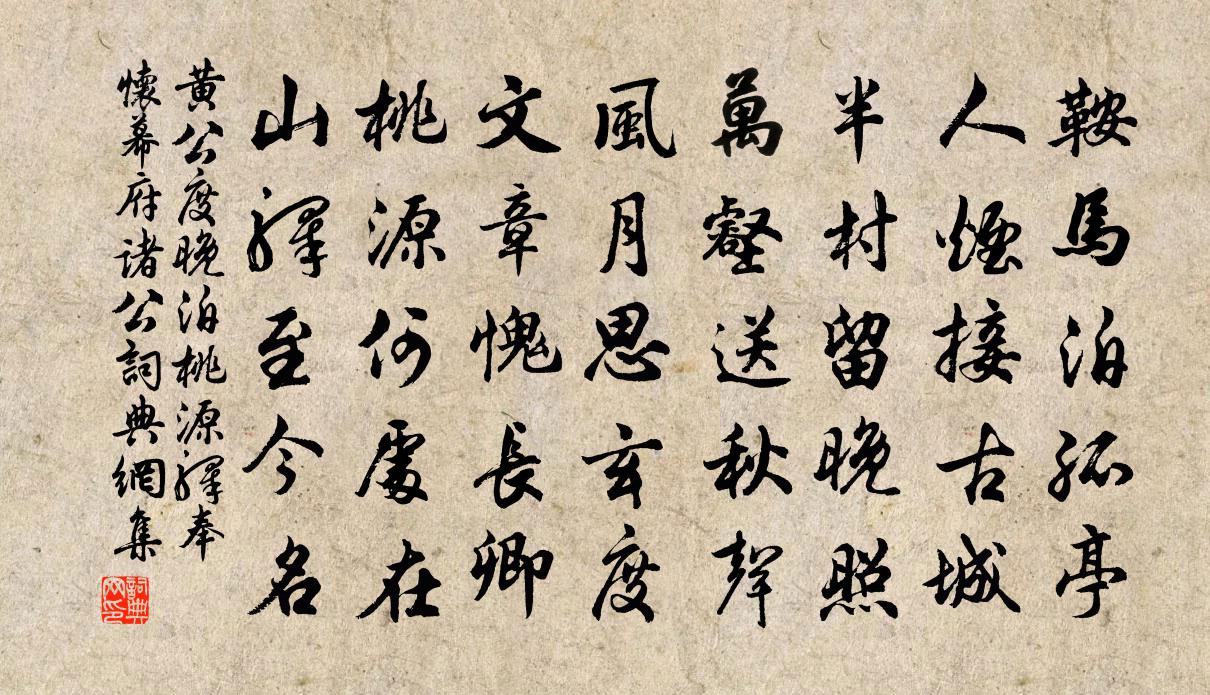 鞍馬泊孤亭
人煙接古城
半村留晚照
萬壑送秋聲
風月思玄度
文章愧長卿
桃源何處在
山驛至今名
黃公度晚泊桃源驛奉
懷幕府諸公詞典網集
詞典網印